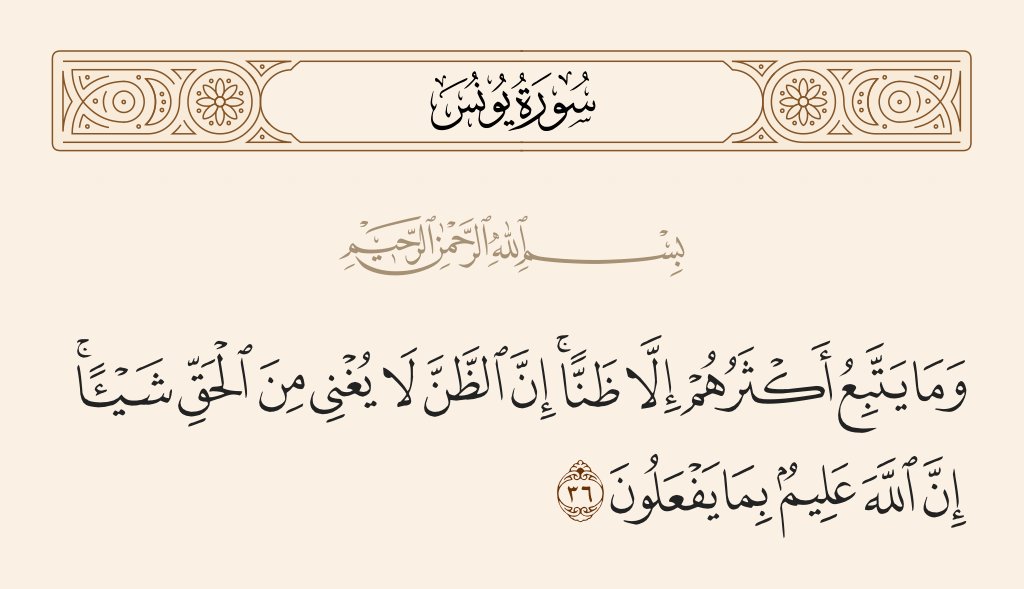 سُورَةُ يُونُسَ
بِسْمِ ٱللَّهِ ٱلرَّحْمَٰنِ ٱلرَّحِيمِ
وَمَا يَتَّبِعُ أَكْثَرُهُمْ إِلَّا ظَنًّاۚ إِنَّ ٱلظَّنَّ لَا يُغْنِى مِنَ ٱلْحَقِّ شَيْـًٔاۚ
إِنَّ ٱللَّهَ عَلِيمٌۢ بِمَا يَفْعَلُونَ ٣٦